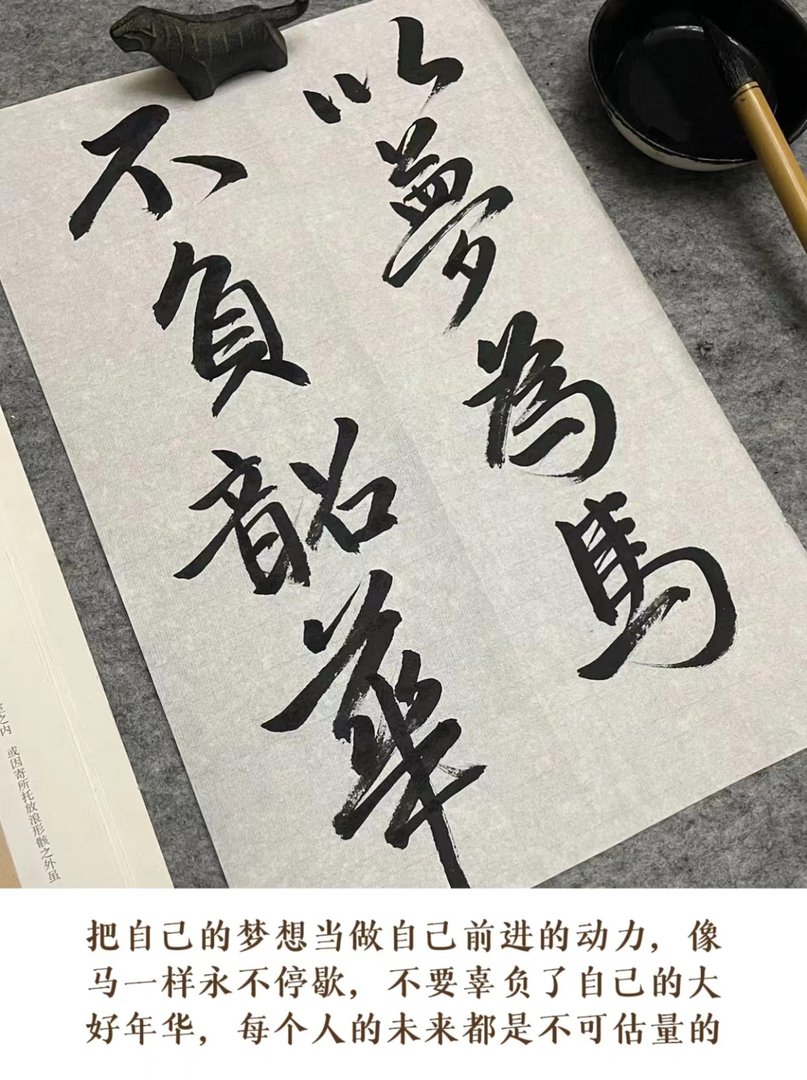 以夢為馬
不負韶華
室之内 或因寄所托放浪形骸之外虽
把自己的梦想当做自己前进的动力，像
马一样永不停歇，不要辜负了自己的大
好年华，每个人的未来都是不可估量的